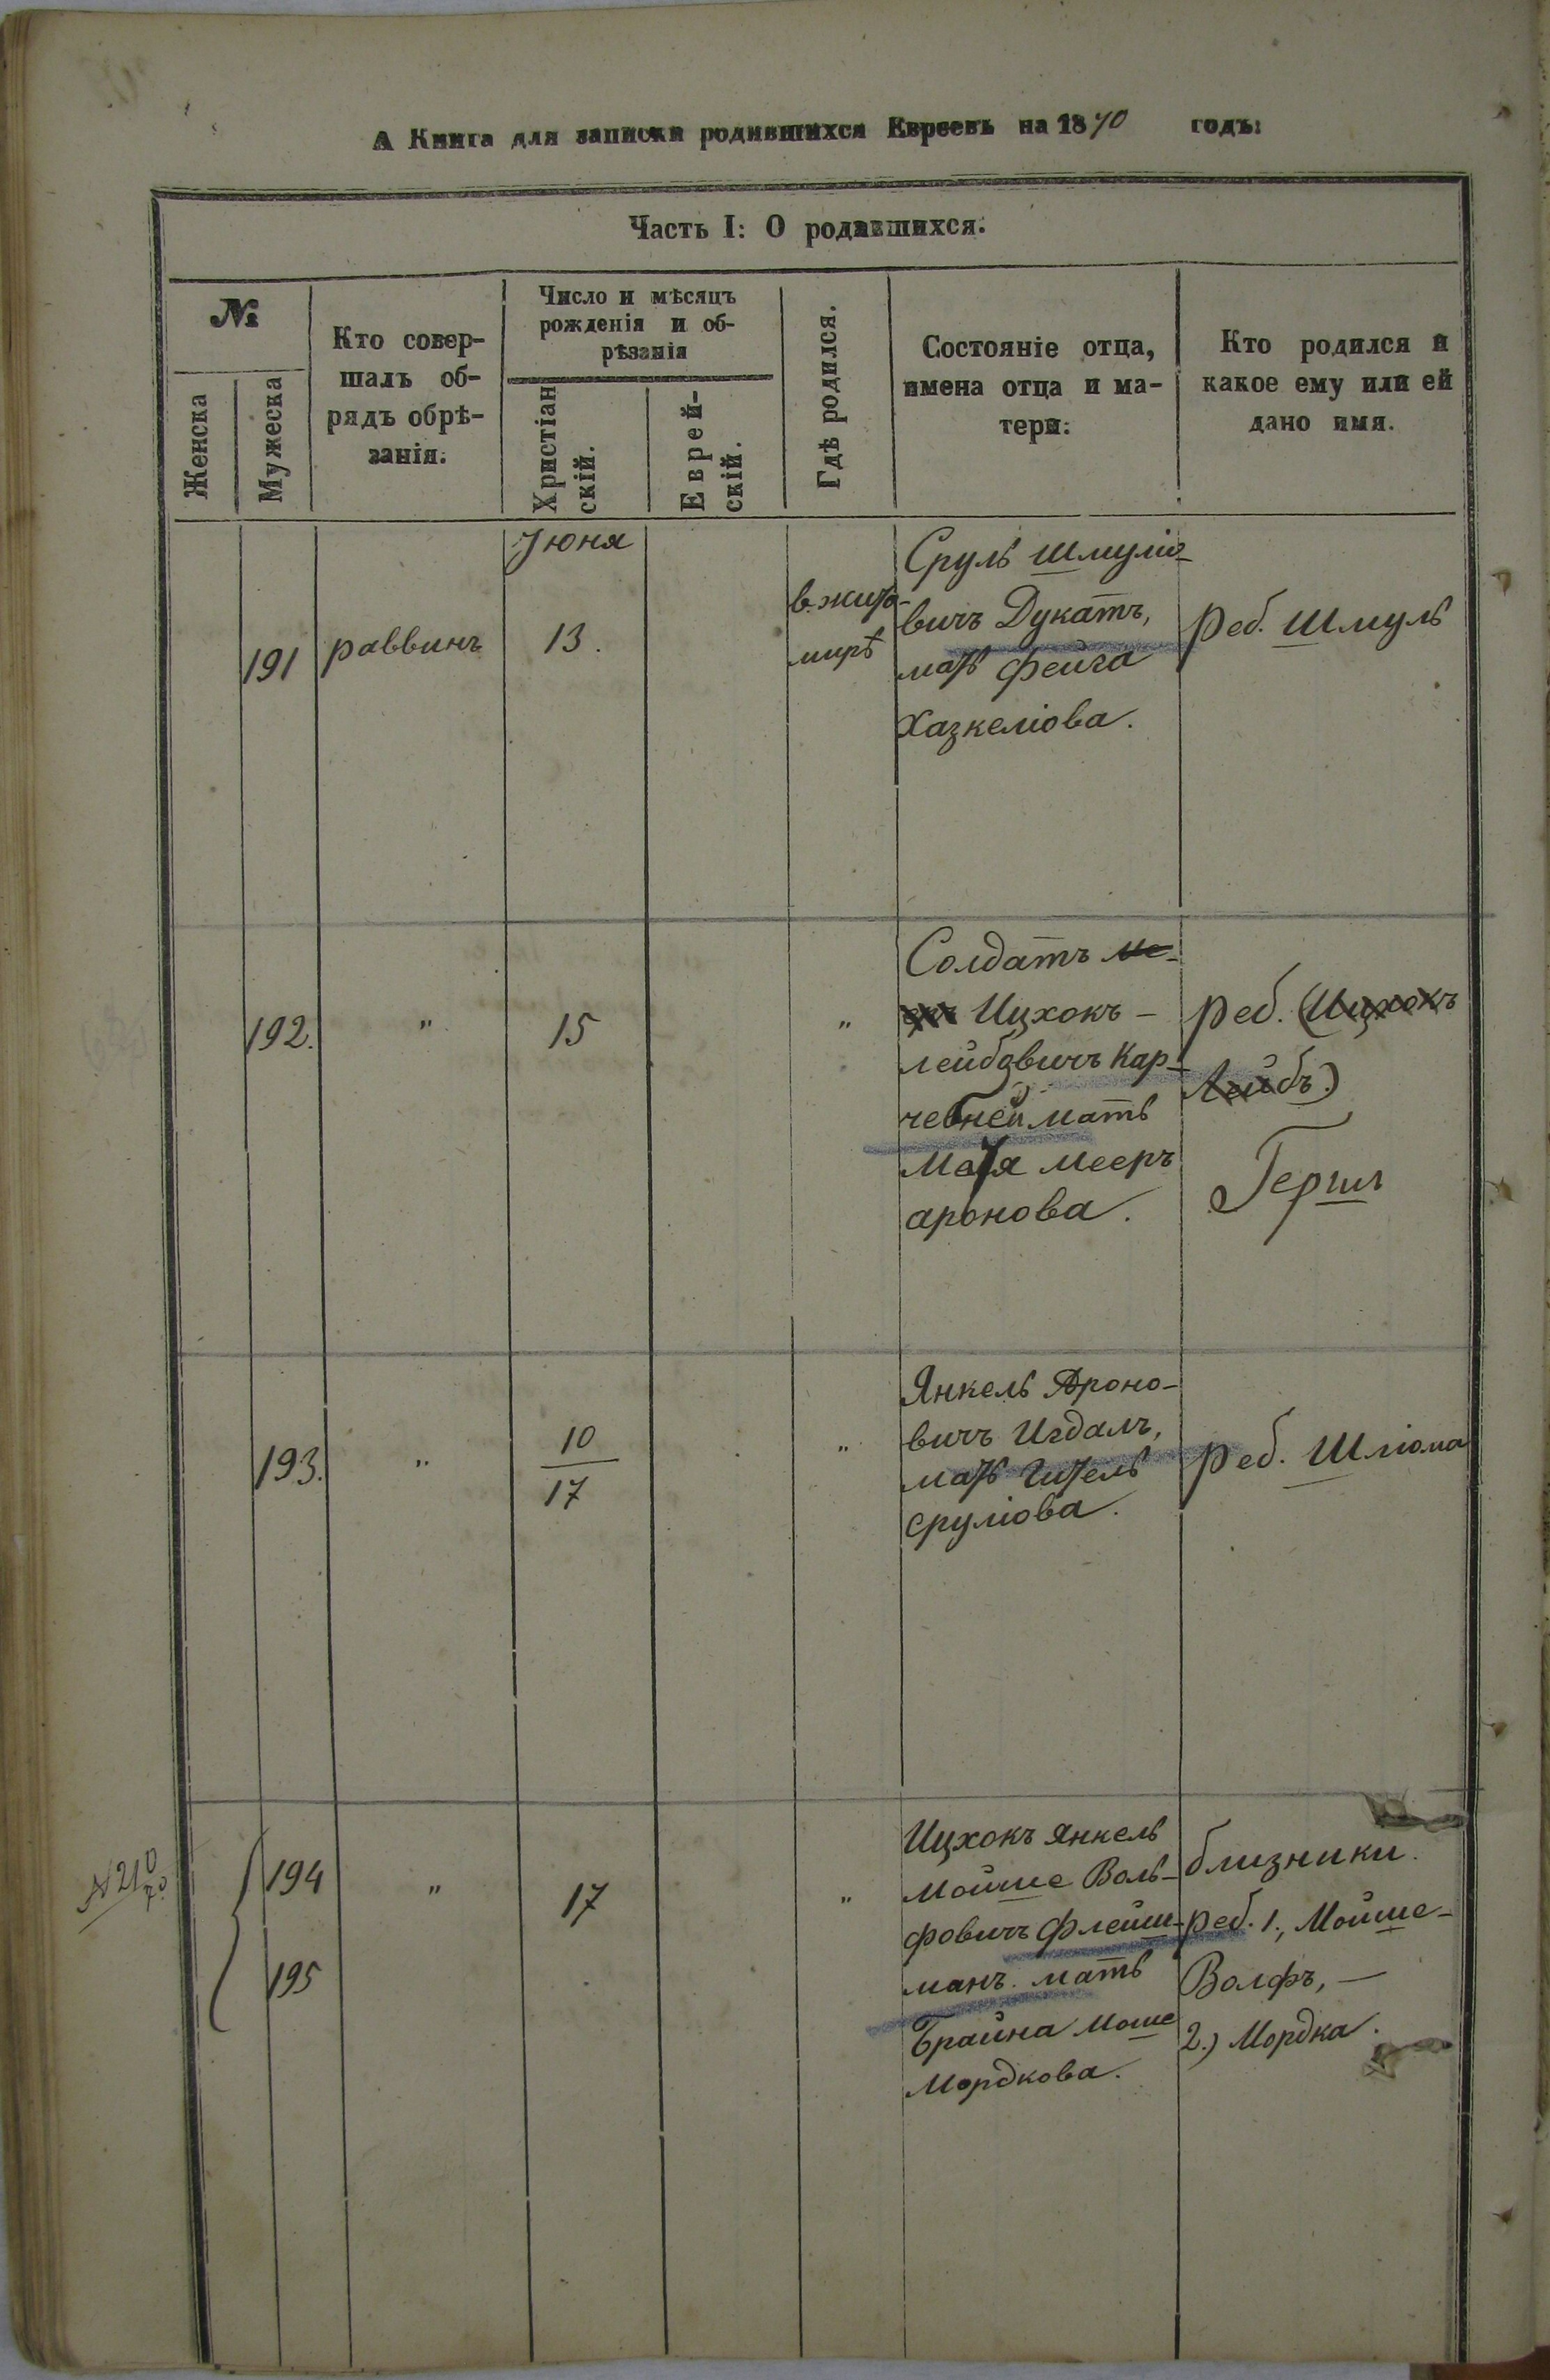 А Книга для записки родившихся Евреевъ на 1870 годъ:
Часть I: О родившихся.
№
Женска
Мужеска
Кто совер-
шалъ об-
рядъ обрѣ-
занія.
Число и мѣсяцъ
рожденія и об-
рѣзанія
Христіан
скій.
Еврей-
скій.
Гдѣ родился.
Состояніе отца,
имена отца и ма-
тери:
Кто родился и
какое ему или ей
дано имя.
Іюня
191
раввинъ
13.
в. жито-
мирѣ
Сруль Шмуліо-
вичъ Дукатъ,
мать Фейга
Хазкеліова.
реб. Шмуль
192.
"
15
"
Солдатъ
Ицхокъ –
лейбовичъ Кар-
чевней мать
Матя меер
аронова.
реб. (Ицхокъ
Лейбъ.)
Герш
193.
"
10
17
"
Янкель Ароно-
вичъ Игдалъ,
мать Гитель
сруліова.
реб. Шліома
№ 210
70
194
195
"
17
"
Ицхокъ Янкель
Мойше Воль-
фовичъ Флейш-
манъ. мать
Брайна Моше
Мордкова.
близники.
реб. 1., Мойше-
Волфъ, –
2.) Мордка.